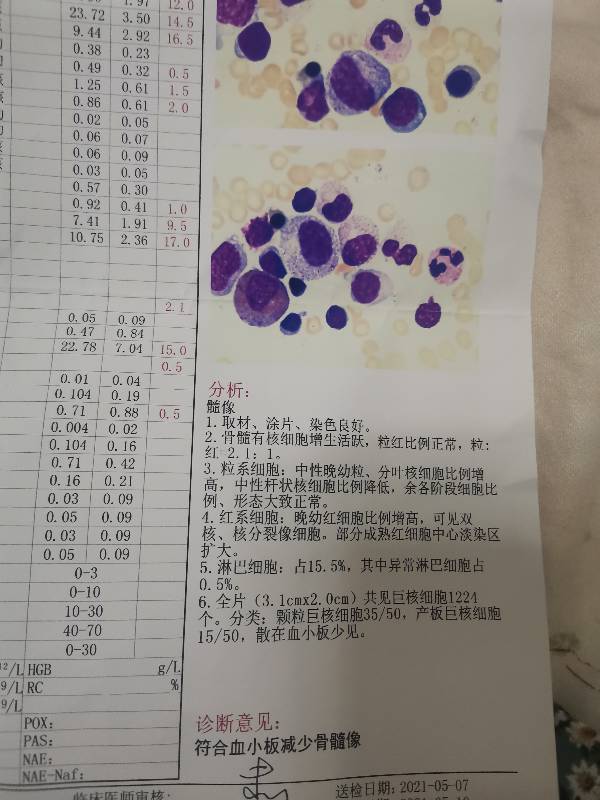 1.97 12.0
23.72 3.50 14.5
9.44 2.92 16.5
0.38 0.23
0.49 0.32 0.5
1.25 0.61 1.5
0.86 0.61 2.0
0.02 0.05
0.06 0.07
0.06 0.09
0.03 0.05
0.57 0.30
0.92 0.41 1.0
7.41 1.91 9.5
10.75 2.36 17.0
2.1
0.05 0.09
0.47 0.84
22.78 7.04 15.0
0.5
0.01 0.04
0.104 0.19
0.71 0.88 0.5
0.004 0.02
0.104 0.16
0.71 0.42
0.16 0.21
0.03 0.09
0.05 0.09
0.03 0.09
0.05 0.09
0-3
0-10
10-30
40-70
0-30
12/L HGB g/L
9/L RC %
9/L
POX:
PAS:
NAE:
NAE-Naf:
分析:
髓像
1.取材、涂片、染色良好。
2.骨髓有核细胞增生活跃，粒红比例正常，粒:
红=2.1：1。
3.粒系细胞：中性晚幼粒、分叶核细胞比例增
高，中性杆状核细胞比例降低，余各阶段细胞比
例、形态大致正常。
4.红系细胞：晚幼红细胞比例增高，可见双
核、核分裂像细胞。部分成熟红细胞中心淡染区
扩大。
5.淋巴细胞：占15.5%，其中异常淋巴细胞占
0.5%。
6.全片（3.1cmx2.0cm）共见巨核细胞1224
个。分类：颗粒巨核细胞35/50，产板巨核细胞
15/50，散在血小板少见。
诊断意见:
符合血小板减少骨髓像
临床医师审核:
送检日期:2021-05-07